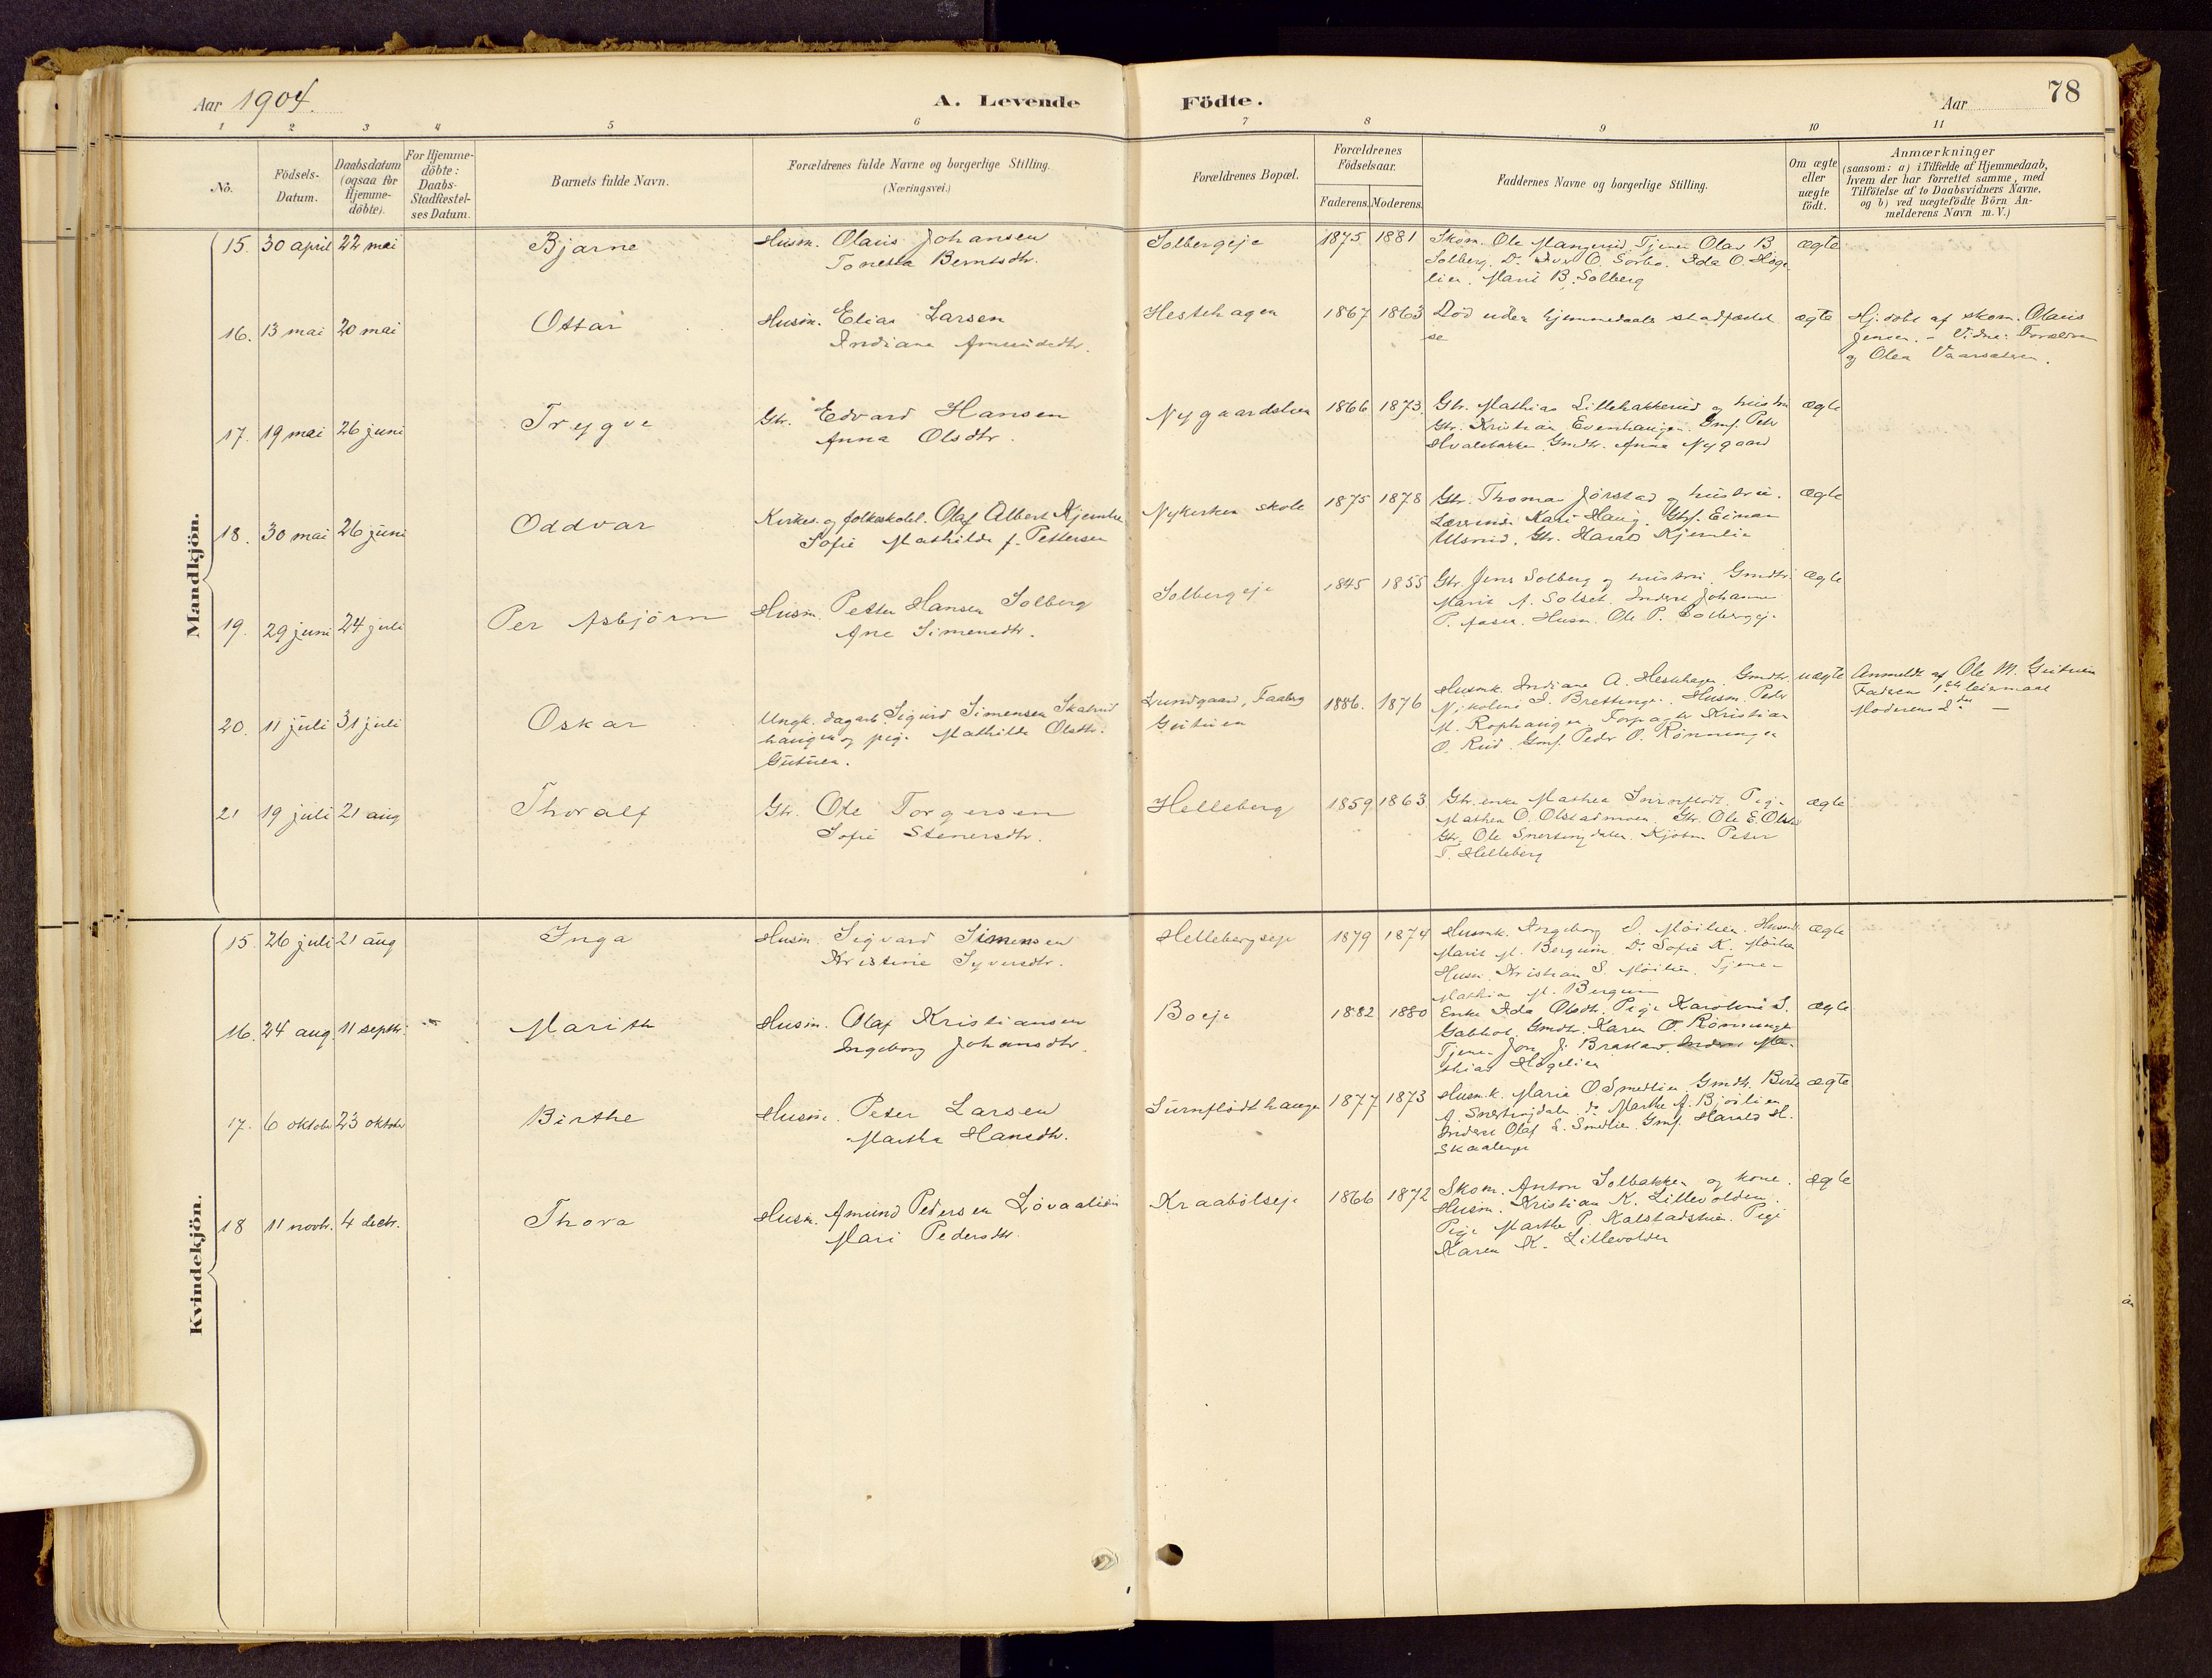 Aar 1904.
A. Levende Födte.
Aar
78
1 2 3 4 5 6 7 8 9 10 11
No.
Födsels-Datum.
Daabsdatum (ogsaa for Hjemme-döbte).
For Hjemme-döbte: Daabs-Stadfestel-ses Datum.
Barnets fulde Navn.
Forældrenes fulde Navne og borgerlige Stilling. (Næringsvei.)
Forældrenes Bopæl.
Forældrenes Födselsaar.
Faderens. Moderens.
Faddernes Navne og borgerlige Stilling.
Om ægte eller uægte födt.
Anmærkninger
(saasom: a) i Tilfælde af Hjemmedaab,
hvem der har forrettet samme, med
Tilföielse af to Daabsvidners Navne.
og b) ved uægtefödte Börn An-
melderens Navn m. V.)
Mandkjön.
15. 30 april 22 mai Bjarne Husm. Olaus Johansen
Tonetta Berntsdtr.
Solbergeje 1875 1881
Skom. Ole Mangerud, Tjener Olav B.
Solberg, Do Iver O. Sorbo. Ida O. Höge
lien. Marit B. Solberg
ægte
16. 13 mai 20 mai Ottar Husm. Elias Larsen
Indiane Amundsdtr.
Hestehagen 1867 1863
Död uden hjemmedaabs stadfæstel
se
ægte
Hj. döbt af skom. Olaus
Jensen. - Vidne: Forældren
og Olea Vaarsæteren.
17. 19 mai 26 juni Trygve Gbr. Edvard Hansen
Anna Olsdtr.
Nygaardslien 1866 1873.
Gbr. Mathias Lillehakkerud og hustru
Gbr. Kristian Evenhaugen. Gmf. Peder
Hvalebakken Gmdtr. Anna Nygaard
ægte
18. 30 mai 26 juni Oddvar Kirkes. og folkeskolel. Olaf Albert Kjernlie
Sofie Mathilde f. Pettersen
Nykirken skole 1875 1878
Gbr. Thomas Jörstad og hustru.
Lærerinde Kari Haug. Gbf. Einar
Ulsrud. Gbr. Harald Kjernlie
ægte
19. 29 juni 24 juli Per Asbjörn Husm. Petter Hansen Solberg
Ane Simensdtr.
Solbergeje 1845 1855
Gbr. Jens Solberg og hustru. Gmdtr.
Marit A. Solset. Inderst Johannes
P. Aasen. Husm. Ole P. Solbergej.
ægte
20. 11 juli 31 juli Oskar Ungk. dagarb. Sigurd Simensen Skatrud
haugen og pige Mathilde Olsdtr.
Gutuen.
Lundgaard, Faaberg
Gutuen
1886. 1876
Husmk. Indiane A. Hestehagen. Gmdtr.
Nikoline S. Brettinge. Husm. Peder
M. Rophaugen. Forpagter Kristian
O. Rud. Gmf. Peder O. Rönningen
uægte
Anmeldt af Ole M. Gutuen
Faderens 1ste leiermaal
Moderens 2det —
21 19 juli 21 aug Thoralf Gbr. Ole Torgersen
Sofie Stenersdtr.
Helleberg 1859 1863
Gbr. enke Mathea Surnflödt. Pige
Mathea O. Olstadmoen. Gbr. Ole E. Olstad
Gbr. Ole Snertingdalen. Kjöbm. Peter
T. Helleberg
ægte
Kvindekjön.
15. 26 juli 21 aug Inga Husm. Sigvard Simensen
Kristine Syversdtr.
Hellebergseje 1879 1874
Husmk. Ingeborg S. Möilien. Husmk
Marit M. Bergum. Do Sofie K. Möilien
Husm. Kristian S. Möilien. Tjener
Mathias M. Bergum
ægte
16. 24 aug. 11 septbr. Marith Husm. Olaf Kristiansen
Ingeborg Johansdtr.
Boeje 1882 1880
Enke Ida Olsdtr. Pige Karoline S.
Gabhol. Gmdtr. Karen O. Rönningen
Tjener Jon J. Brastad. Inderst Ma-
thias Högelien
ægte
17. 6 oktobr 23 oktobr Birthe Husm. Peter Larsen
Marthe Hansdtr.
Surnflödthaugen 1877 1873
Husmk. Maria O. Smedlien Gmdtr. Berte
A. Snertingdalen do Marthe A. Bjöilien
Inderst Olaf L. Smedlien. Gmf. Harald H.
Skaalerge
ægte
18 11 novbr. 4 decbr. Thora Husm. Amund Pedersen Lövaalien
Mari Pedersdtr.
Kraabölseje 1866 1872
Skom. Anton Solbakken og kone.
Husm. Kristian K. Lillevolden.
Pige Marthe P. Kalstadstuen. Pige
Karen K. Lillevolden
ægte